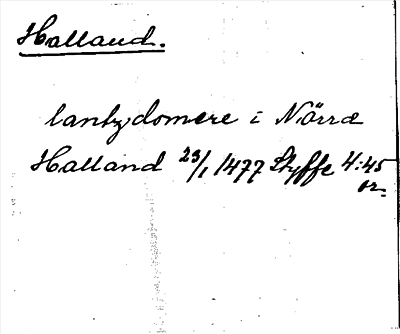 Halland.
lantzdomere i Nörra
Halland 23/1 1477 Styffe 4:45
or.